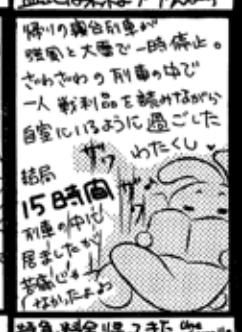 帰りの寝台列車が
強風と大雪で一時停止。
ざわざわの列車の中で
一人戦利品を読みながら
自室にいるように過ごした
わたくし
ザワ
ザワ
結局
15時間
列車の中に
居ましたが
苦痛じゃ
なかったよぉ